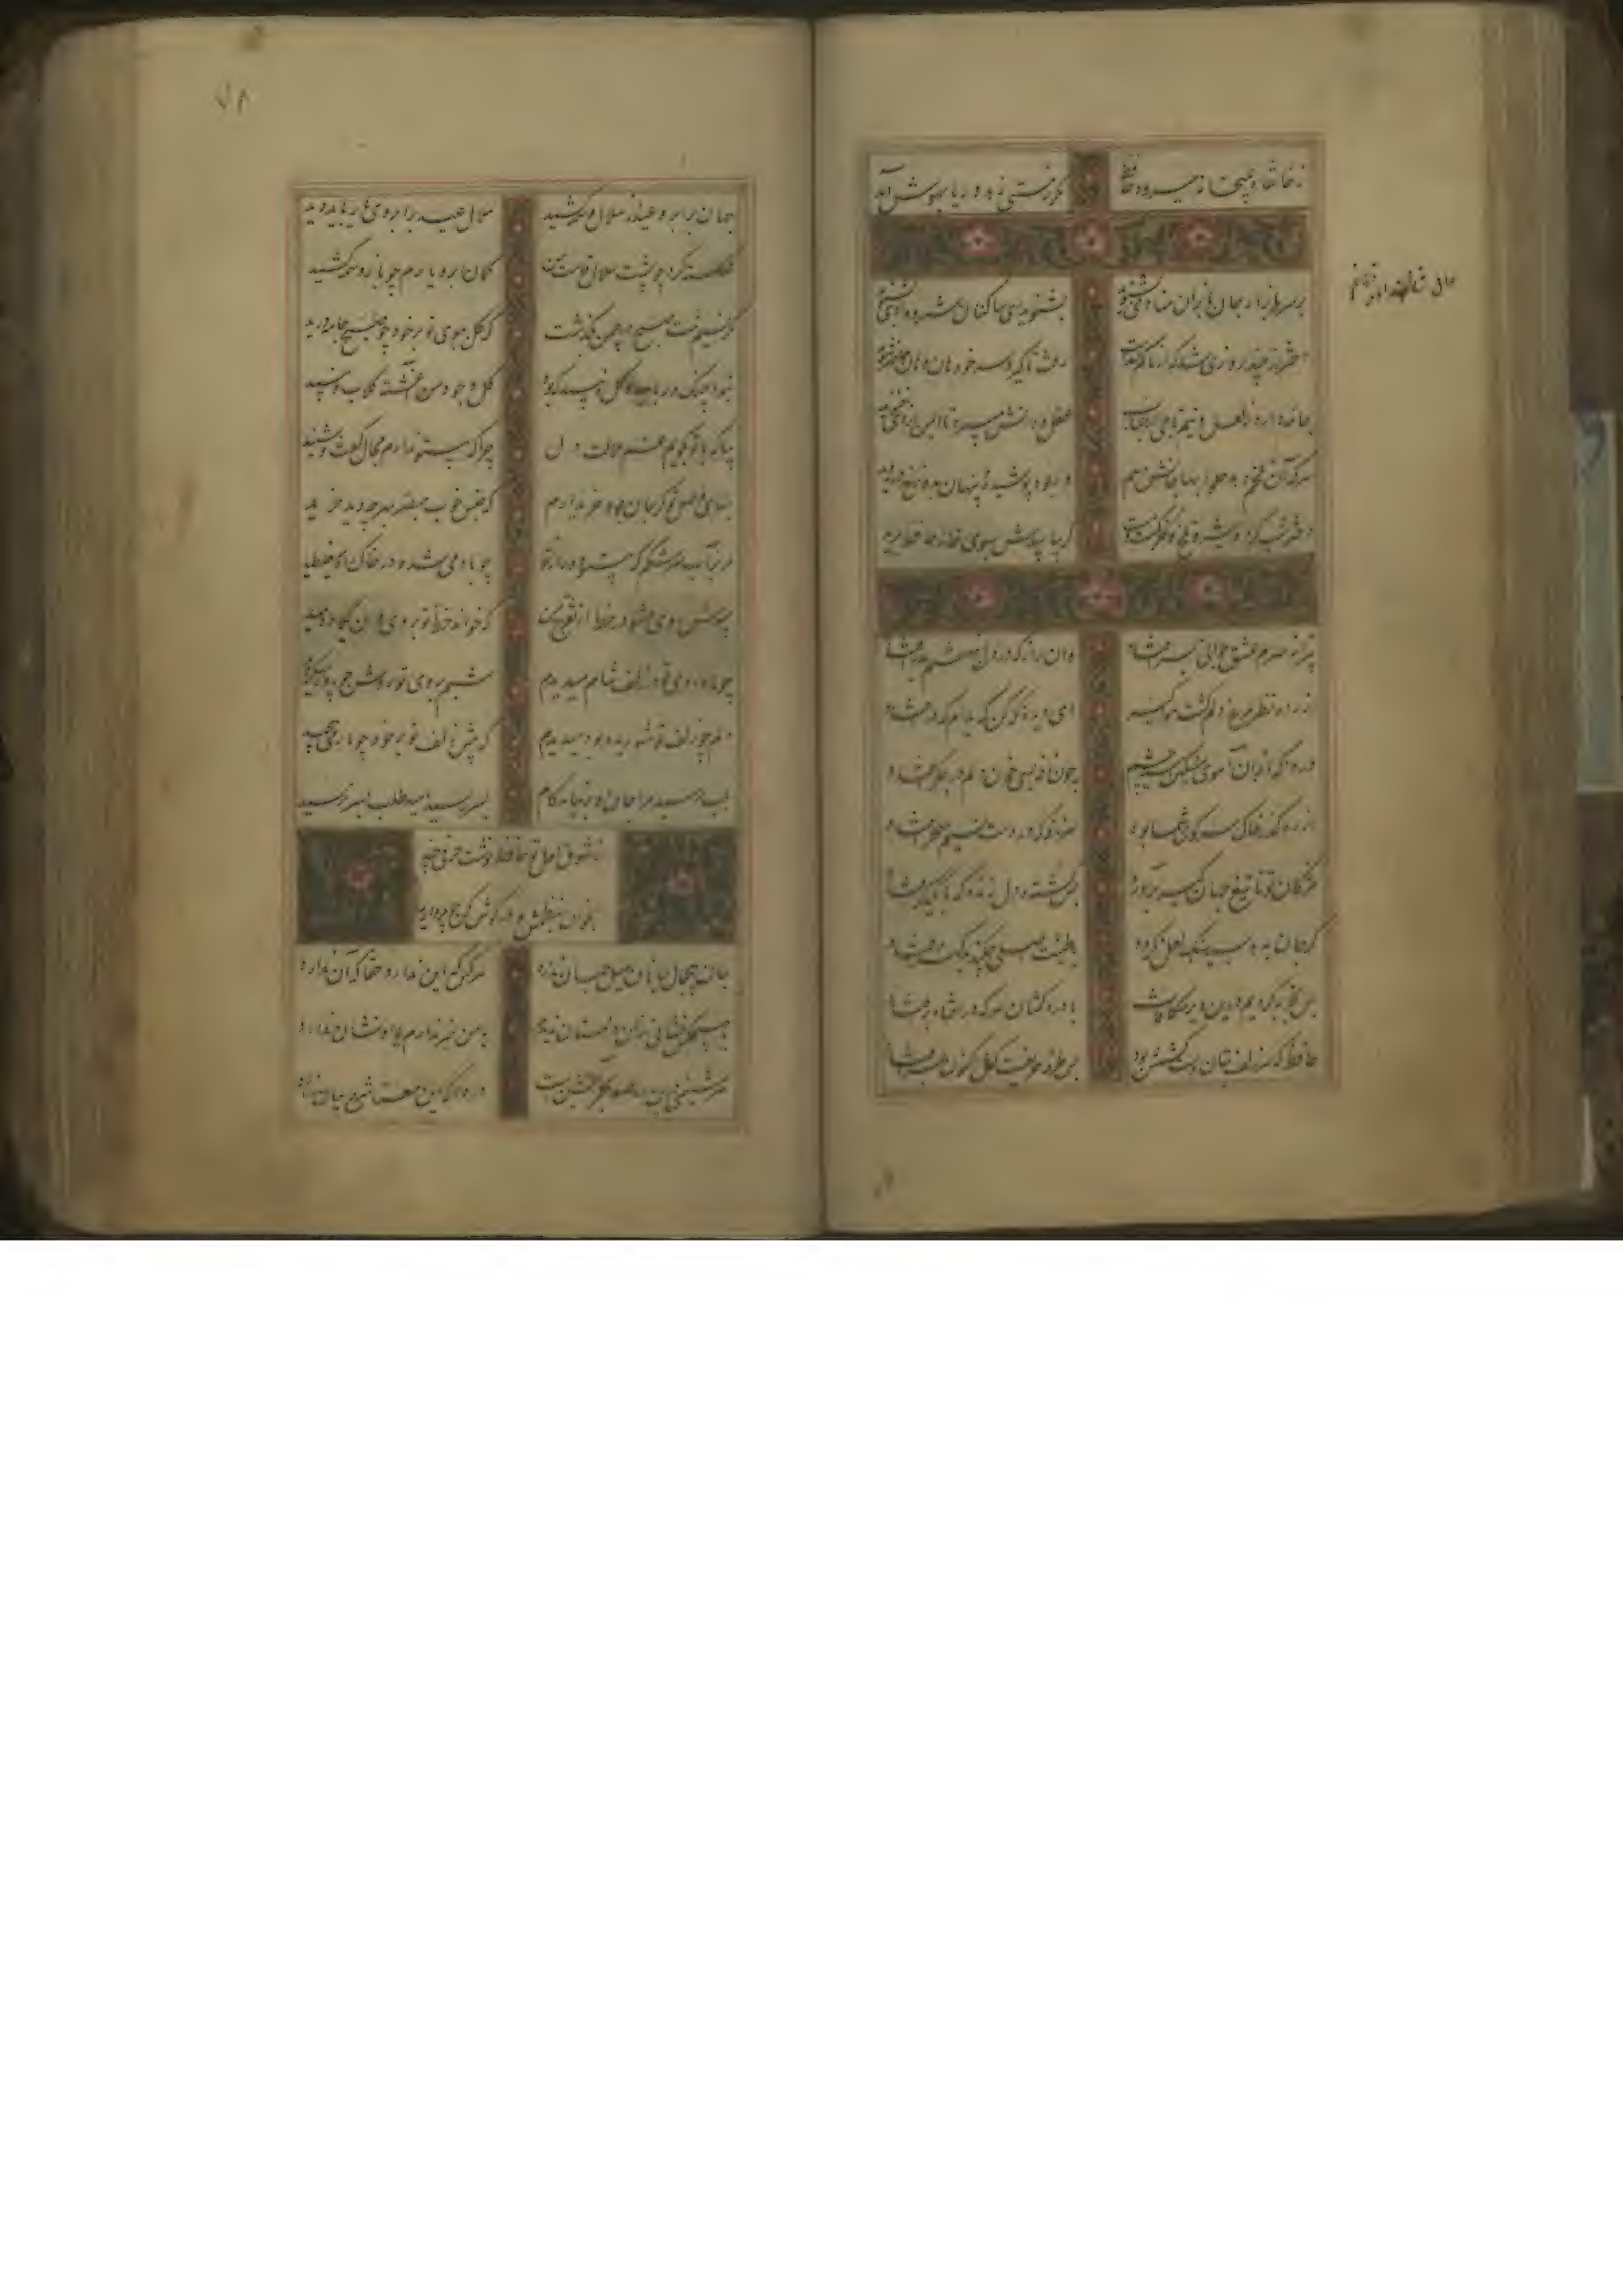 ز خانقاه به میخانه میرود حافظ مگر ز مستی زهد و ریا بهوش آمد
بر سر بازار جانبازان منادی میزنند بشنوید ای ساکنان کوی رندی بشنوید
دختر رز چند روزی شد که از ما گم شدست رفت تا گیرد سر خود هان و هان حاضر شوید
جامه دارد ز لعل و نیم تاجی از حباب عقل و دانش میبرد تا ایمن از وی نغنوید
هر که آن تلخم دهد حلوا بها جانش دهم ور بود پوشیده و پنهان بدوزخ در روید
دختر شب گرد تلخ گلرنگ مست گر بیابیدش بسوی خانه حافظ برید
پیرانه سرم عشق جوانی بسر افتاد وان راز که در دل بنهفتم بدر افتاد
از راه نظر مرغ دلم گشت هواگیر ای دیده نگه کن که بدام که در افتاد
دردا که از آن آهوی مشکین سیه چشم چون نافه بسی خون دلم در جگر افتاد
از رهگذر خاک سر کوی شما بود هر نافه که در دست نسیم سحر افتاد
مژگان تو تا تیغ جهان گیر برآورد بس کشته دل زنده که بر یکدگر افتاد
گر جان بدهد سنگ سیه لعل نگردد با طینت اصلی چکند بدگهر افتاد
بس تجربه کردیم درین دیر مکافات با دردکشان هر که در افتاد بر افتاد
حافظ که سر زلف بتان دست کشش بود بس طرفه حریفیست کش اکنون بسر افتاد
۷۸
جهان بر ابروی عید از هلال وسمه کشید هلال عید در ابروی یار باید دید
شکسته گشت چو پشت هلال قامت من کمان ابروی یارم چو باز وسمه کشید
مگر نسیم تنت صبح در چمن بگذشت که گل ببوی تو بر خود چو صبح جامه درید
نبود چنگ و رباب و گل و نبید که بود گل وجود من آغشته گلاب و نبید
بیا که با تو بگویم غم ملالت دل چرا که بی تو ندارم مجال گفت و شنید
بهای وصل تو گر جان بود خریدارم که جنس خوب مبصر بهر چه دید خرید
چو ماه روی تو در شام زلف میدیدم شبم بروی تو روشن چو روز میگردید
بلب رسید مرا جان و بر نیامد کام بسر رسید امید و طلب بسر نرسید
ز شوق لعل تو حافظ نوشت حرفی چند
بخوان ز نظمش و در گوش کن چو مروارید
جان بی جمال جانان میل جهان ندارد هر کس که این ندارد حقا که آن ندارد
با هیچکس نشانی زان دلستان ندیدم یا من خبر ندارم یا او نشان ندارد
هر شبنمی درین ره صد بحر آتشین است دردا که این معما شرح و بیان ندارد